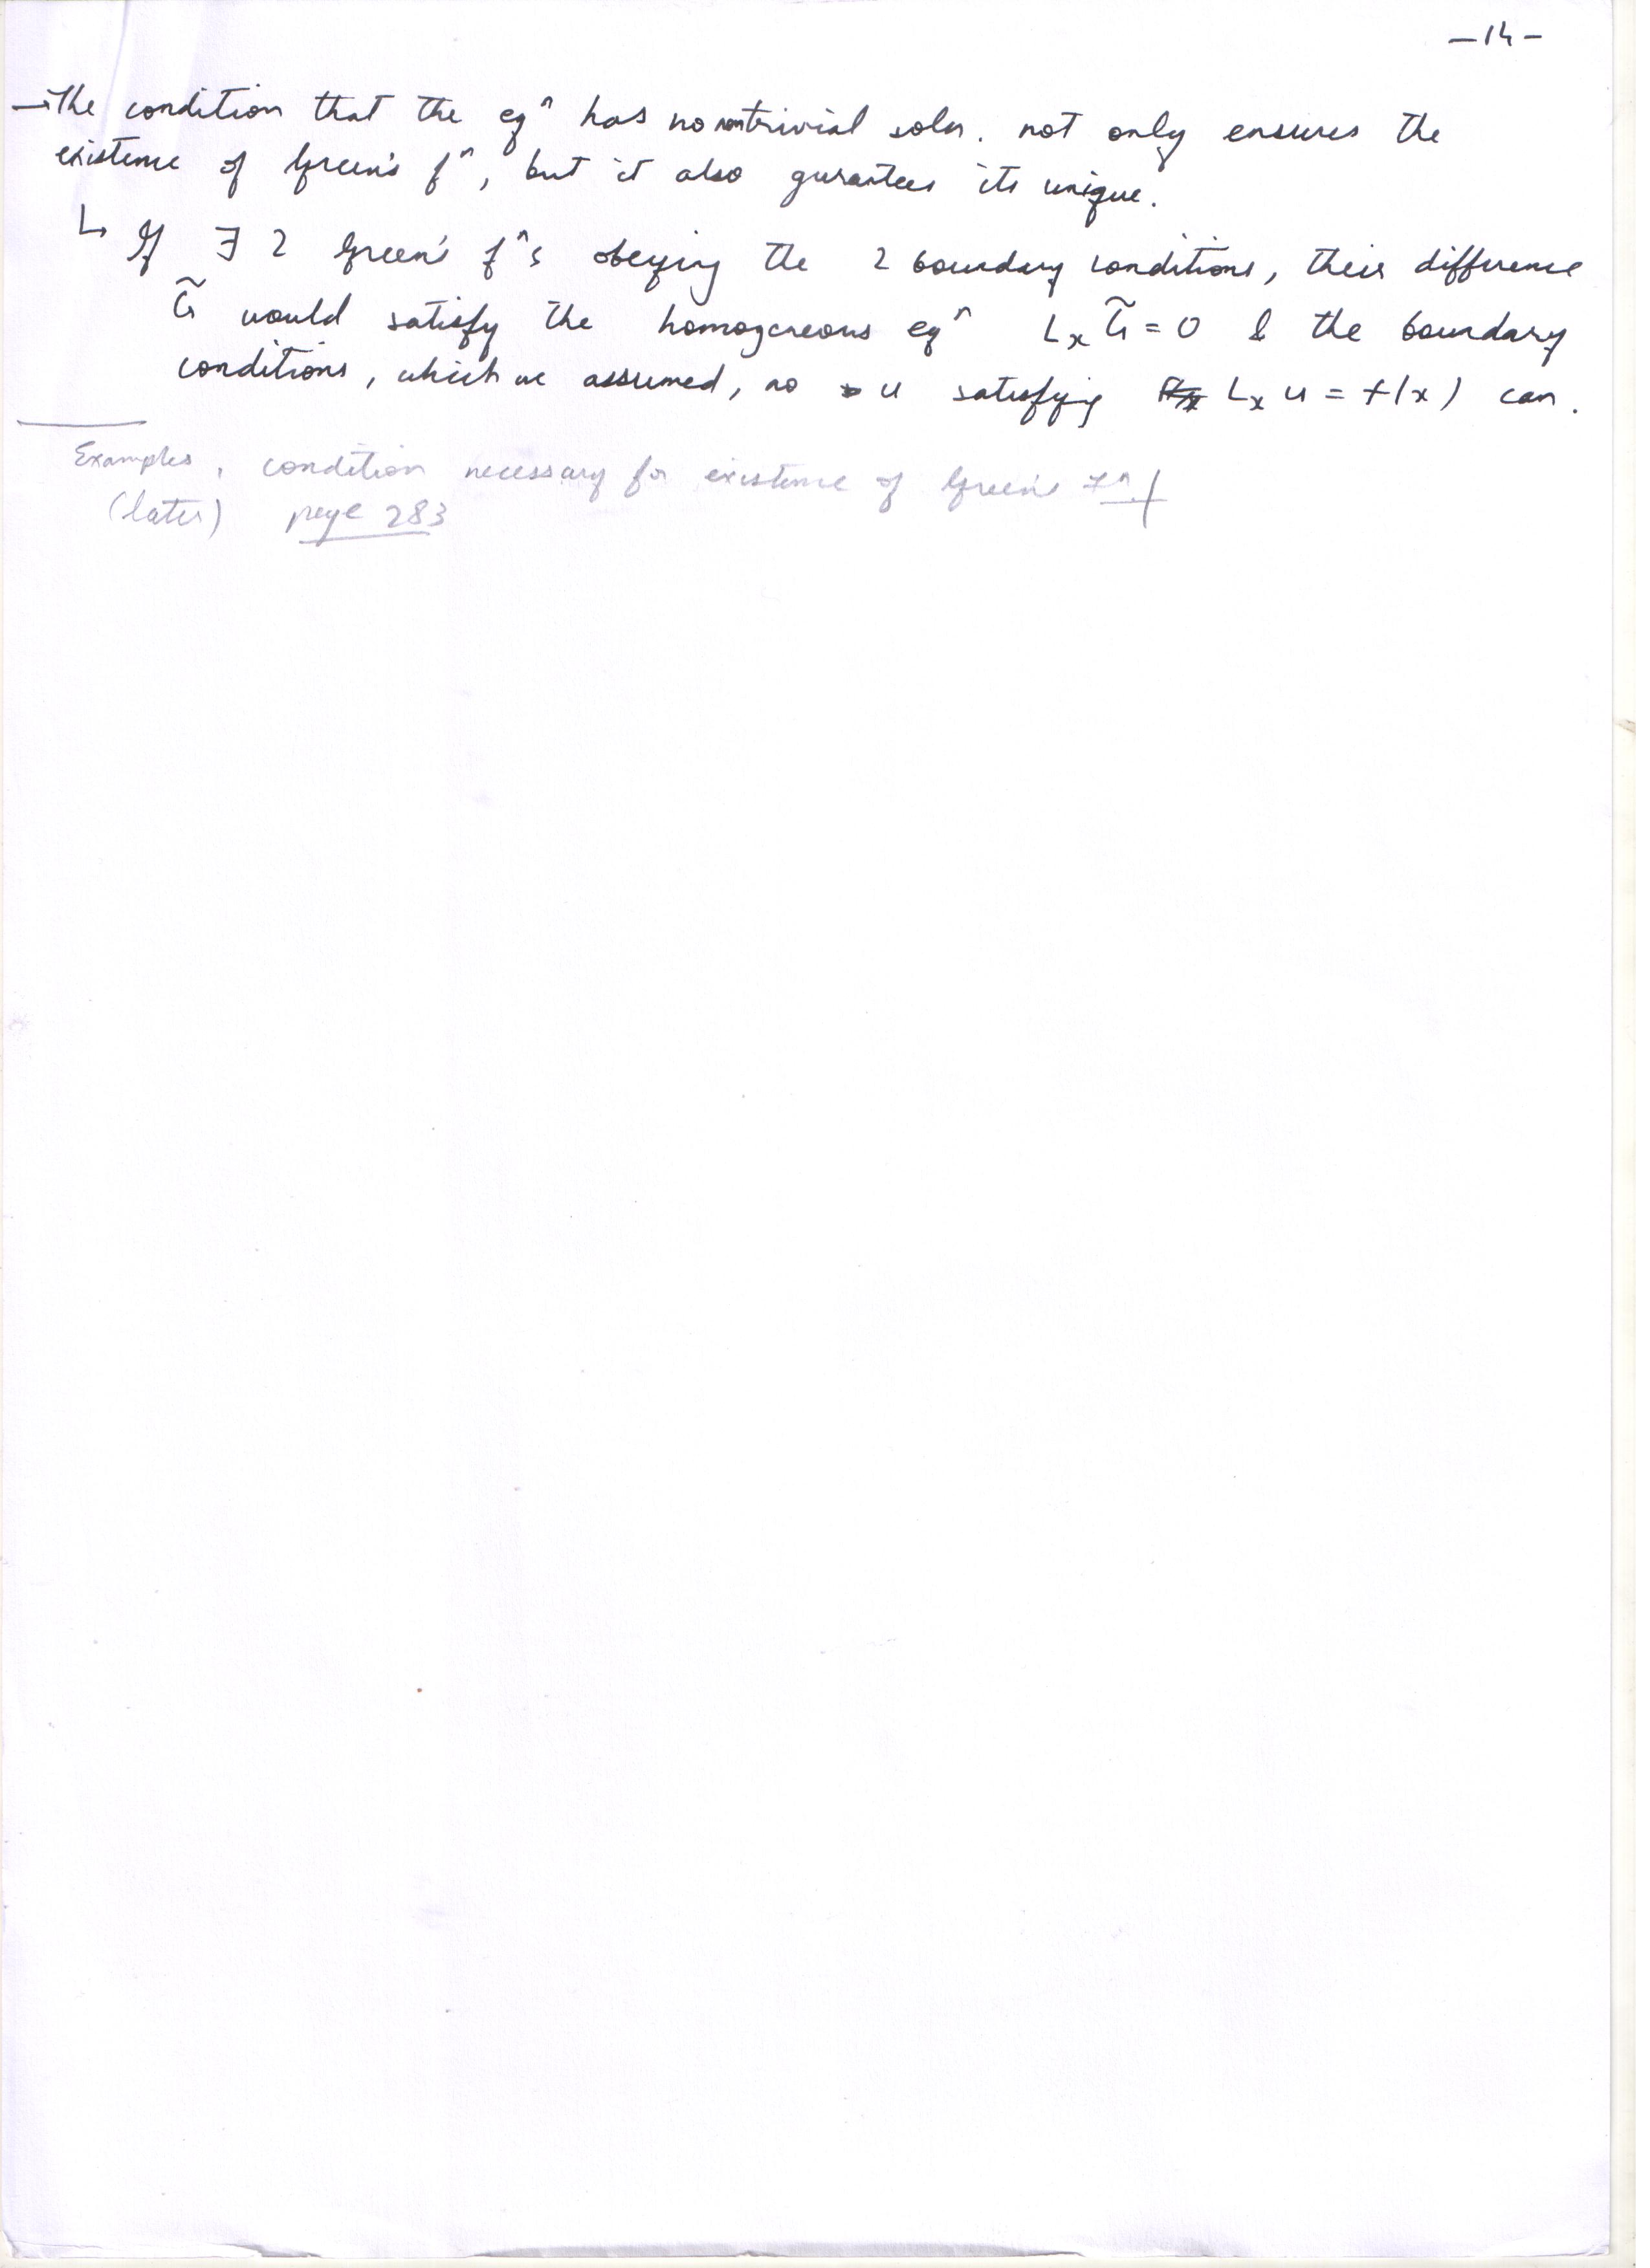 -14-
→The condition that the eqⁿ has no nontrivial soln. not only ensures the
existence of Green's fⁿ, but it also gurantees its unique.
↳ If ∃ 2 Green's fⁿs obeying the 2 boundary conditions, their difference
G̃ would satisfy the homogeneous eqⁿ Lₓ G̃ = 0 & the boundary
conditions, which we assumed, no u satisfying Lₓ u = f(x) can.
Examples, condition necessary for existence of Green's fⁿ
(later) page 283